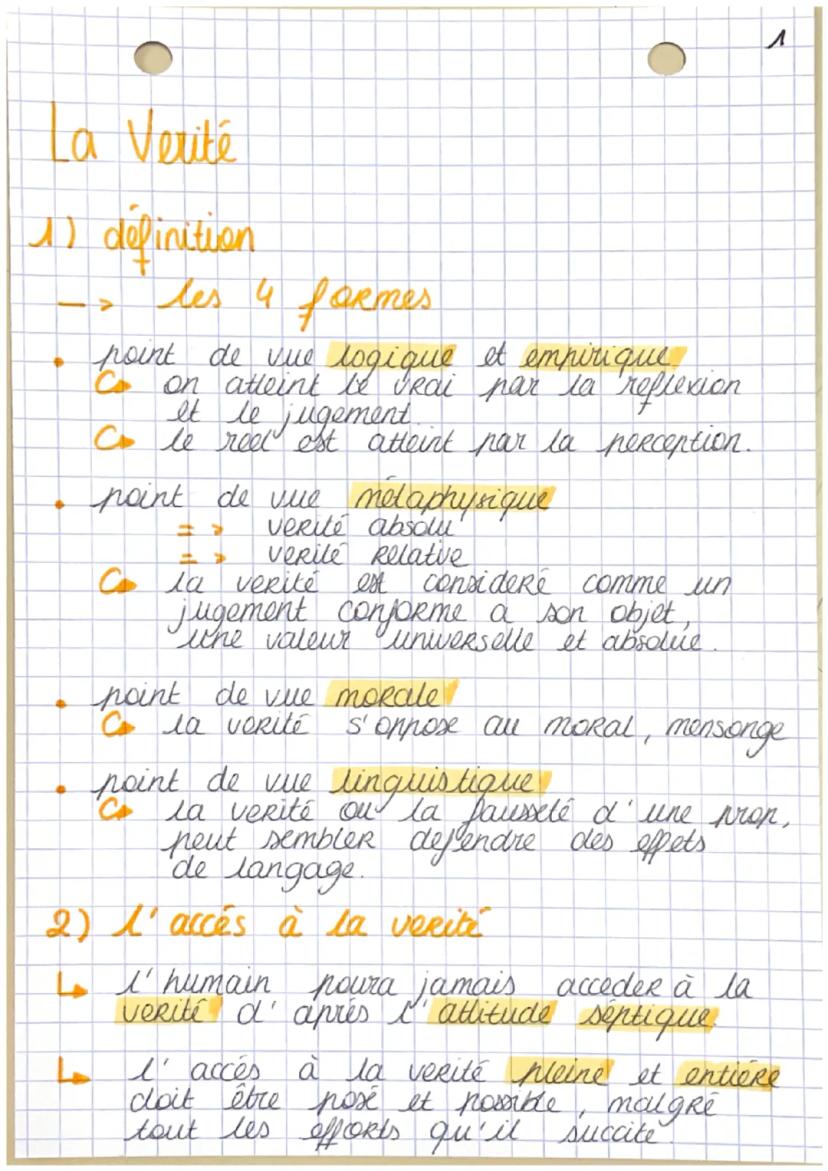 1
La Verité
1) définition
--> les 4 formes
• point de vue logique et empirique.
↳ on atteint le vrai par la reflexion
et le jugement.
↳ le réel est atteint par la perception.
• point de vue métaphysique
=> verité absolu
=> verité relative
↳ la verité est consideré comme un
jugement conforme a son objet,
une valeur universelle et absolue.
• point de vue morale
↳ la verité s'oppose au moral, mensonge
• point de vue linguistique
↳ la verité ou la fausseté d'une prop,
peut sembler dependre des effets
de langage.
2) l'accés à la verité
↳ l'humain poura jamais acceder à la
verité d'aprés l'attitude séptique.
↳ l'accés à la verité pleine et entiére
doit être posé et possible, malgré
tout les efforts qu'il succite.